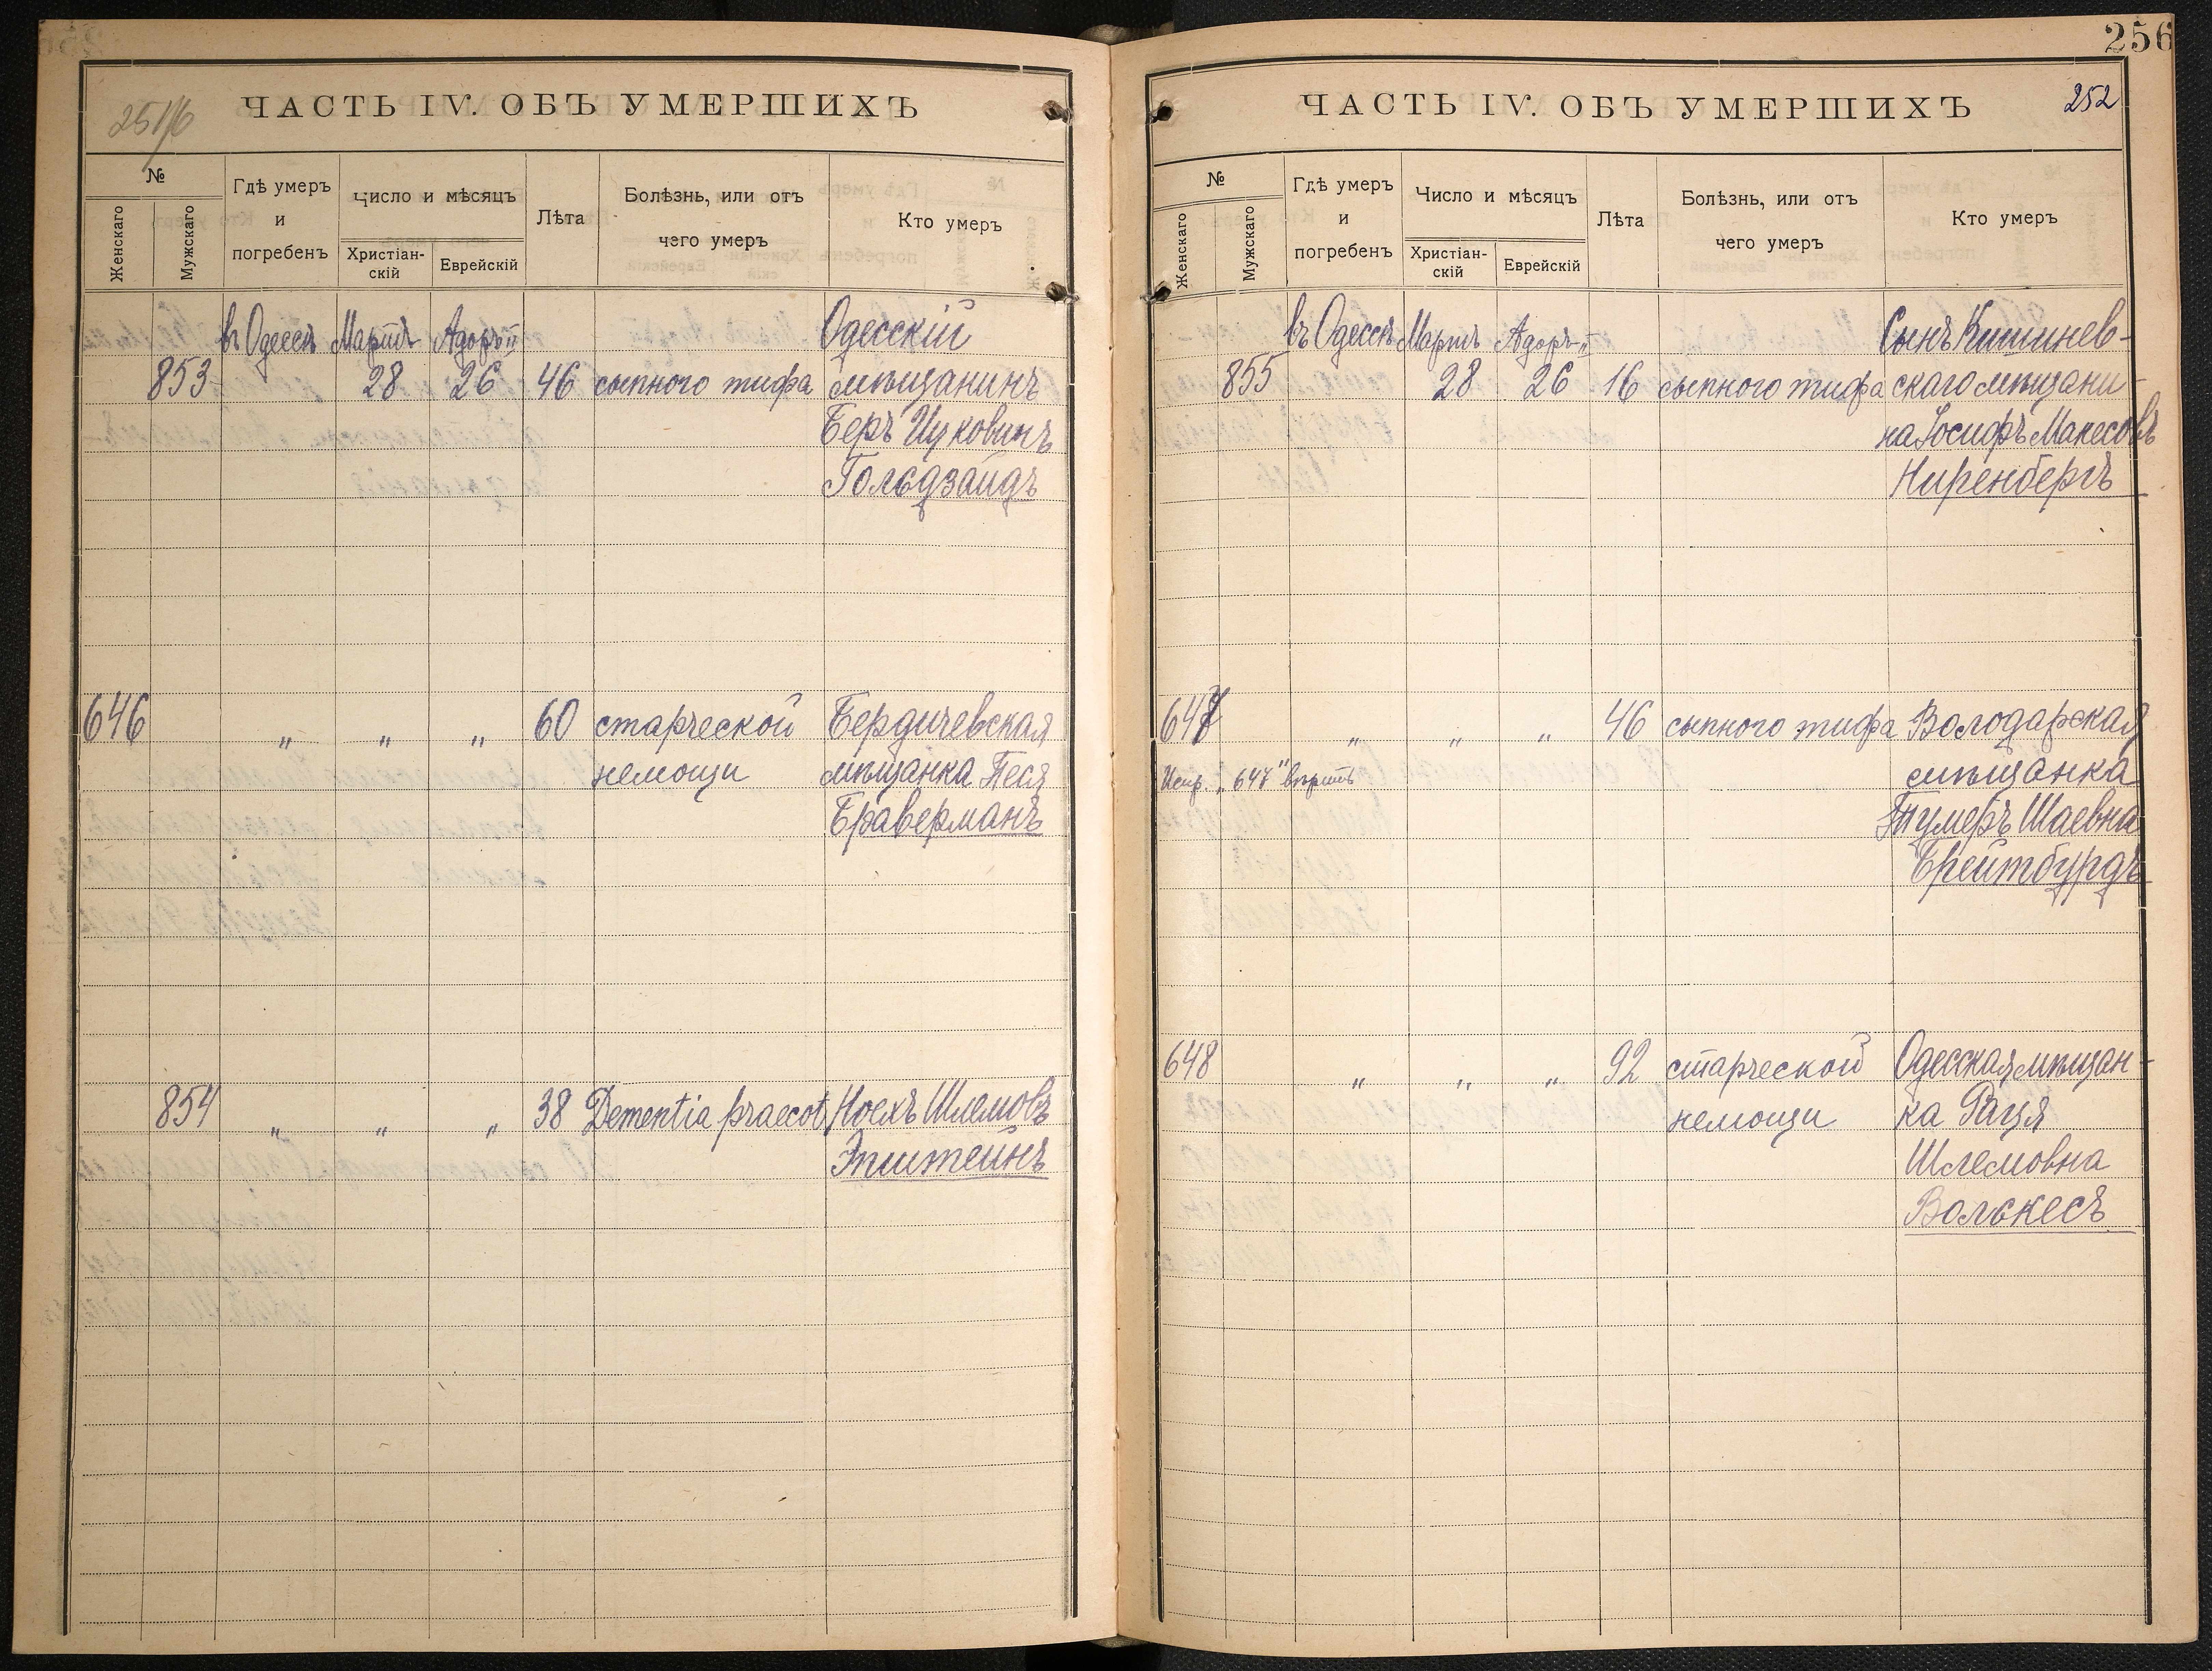 251/6
ЧАСТЬ IV. ОБЪ УМЕРШИХЪ
№
Женскаго
Мужскаго
Гдѣ умеръ
и
погребенъ
Число и мѣсяцъ
Христіан-
скій
Еврейскій
Лѣта
Болѣзнь, или отъ
чего умеръ
Кто умеръ
въ Одессѣ Мартъ Адоръ II Одесскій
853 28 26 46 сыпного тифа мѣщанинъ
Беръ Ицковичъ
Гольдзайдъ
646 " " " 60 старческой Бердичевская
немощи мѣщанка Песя
Браверманъ
854 " " " 38 Dementia praecot. Ноехъ Шлемовъ
Эпштейнъ
256
ЧАСТЬ IV. ОБЪ УМЕРШИХЪ
252
№
Женскаго
Мужскаго
Гдѣ умеръ
и
погребенъ
Число и мѣсяцъ
Христіан-
скій
Еврейскій
Лѣта
Болѣзнь, или отъ
чего умеръ
Кто умеръ
въ Одессѣ Мартъ Адоръ II Сынъ Кишинев-
855 28 26 16 сыпного тифа скаго мѣщани-
на Іосифъ Манесовъ
Ниренбергъ
647 " " " 46 сыпного тифа Володарская
Испр. "647" вѣрить мѣщанка
Тумеръ Шаевна
Брейтбурдъ
648 " " " 92 старческой Одесская мѣщан-
немощи ка Рация
Шлемовна
Волькесъ